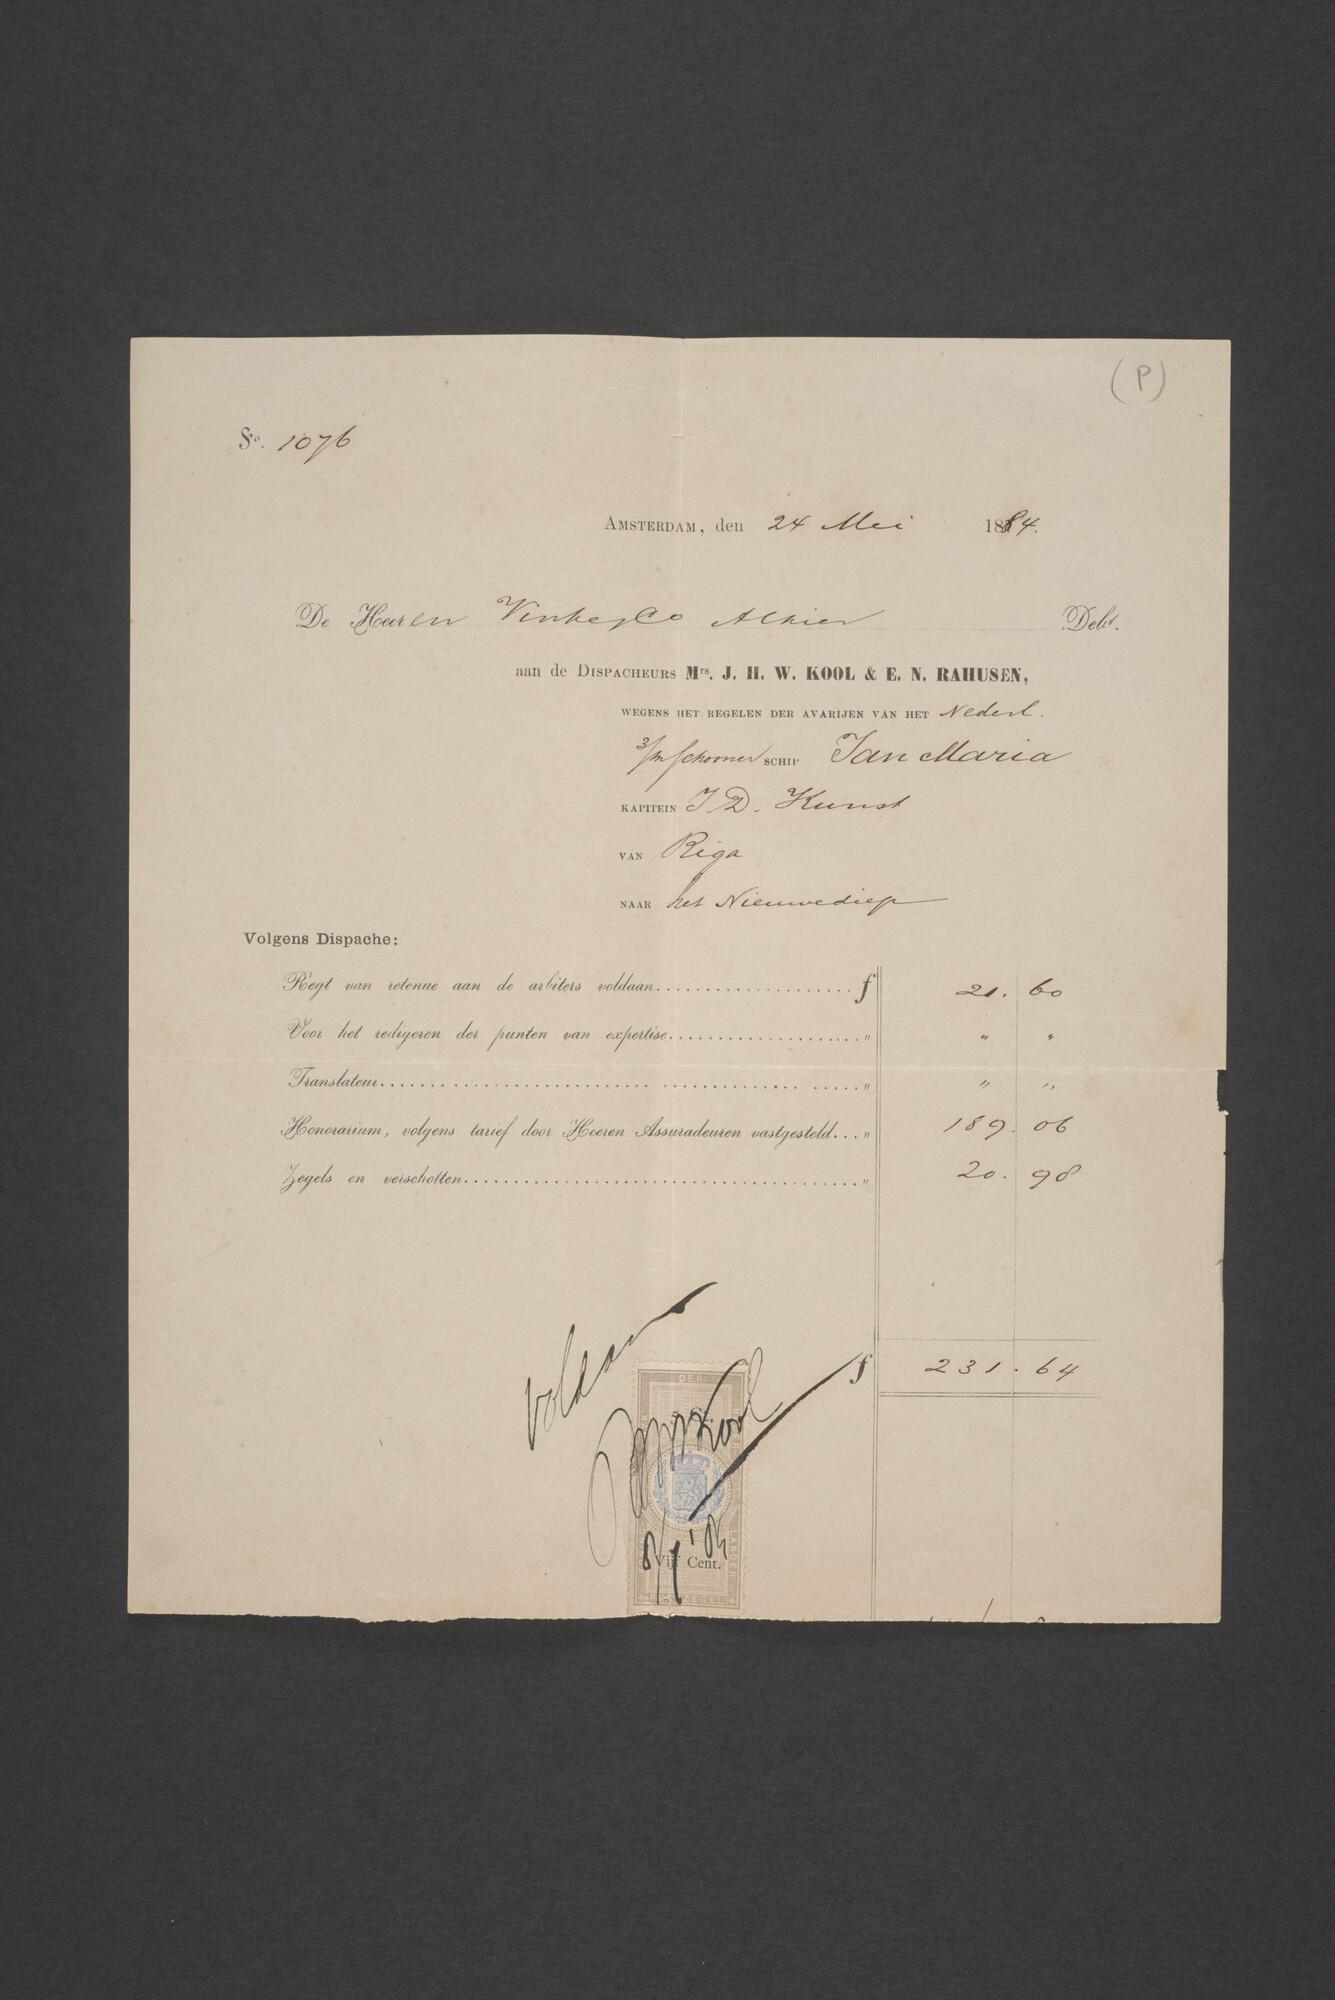 (P)
Sc. 1076
AMSTERDAM, den 24 Mei 1884.
De Heeren Vinke & Co Alhier Debt.
aan de DISPACHEURS Mrs. J. H. W. KOOL & E. N. RAHUSEN,
WEGENS HET REGELEN DER AVARIJEN VAN HET Nederl.
3/m schooner SCHIP Jan Maria
KAPITEIN J D. Kunst
VAN Riga
NAAR het Nieuwediep
Volgens Dispache:
Regt van retenue aan de arbiters voldaan.................... f 21. 60
Voor het redigeren der punten van expertise.................... " " "
Translateur.................... " " "
Honorarium, volgens tarief door Heeren Assuradeuren vastgesteld... " 189. 06
Zegels en verschotten.................... " 20. 98
f 231. 64
Voldaan
Kool
Vijf Cent.